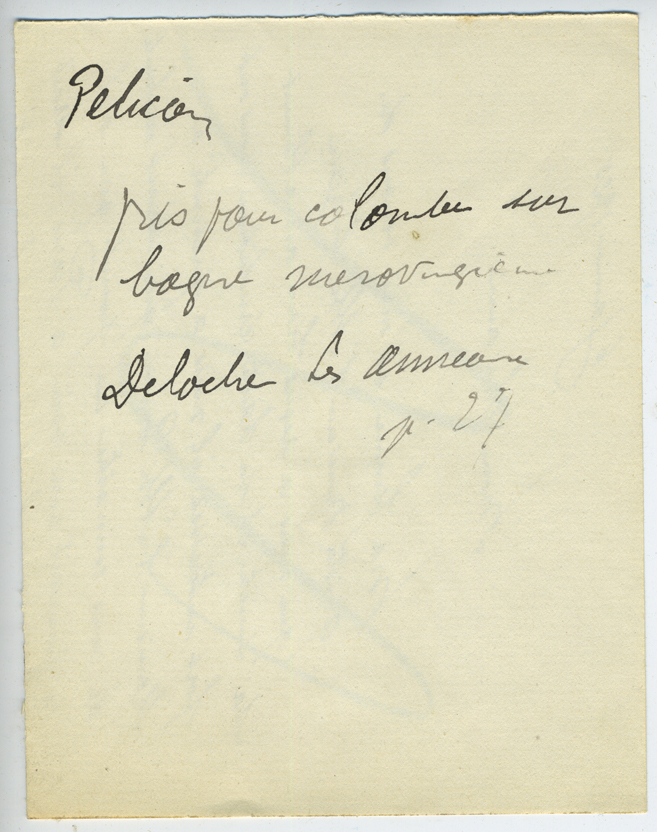 Pelican
pris pour colombe sur
bague merovingienne
Deloche Les anneaux
p. 27